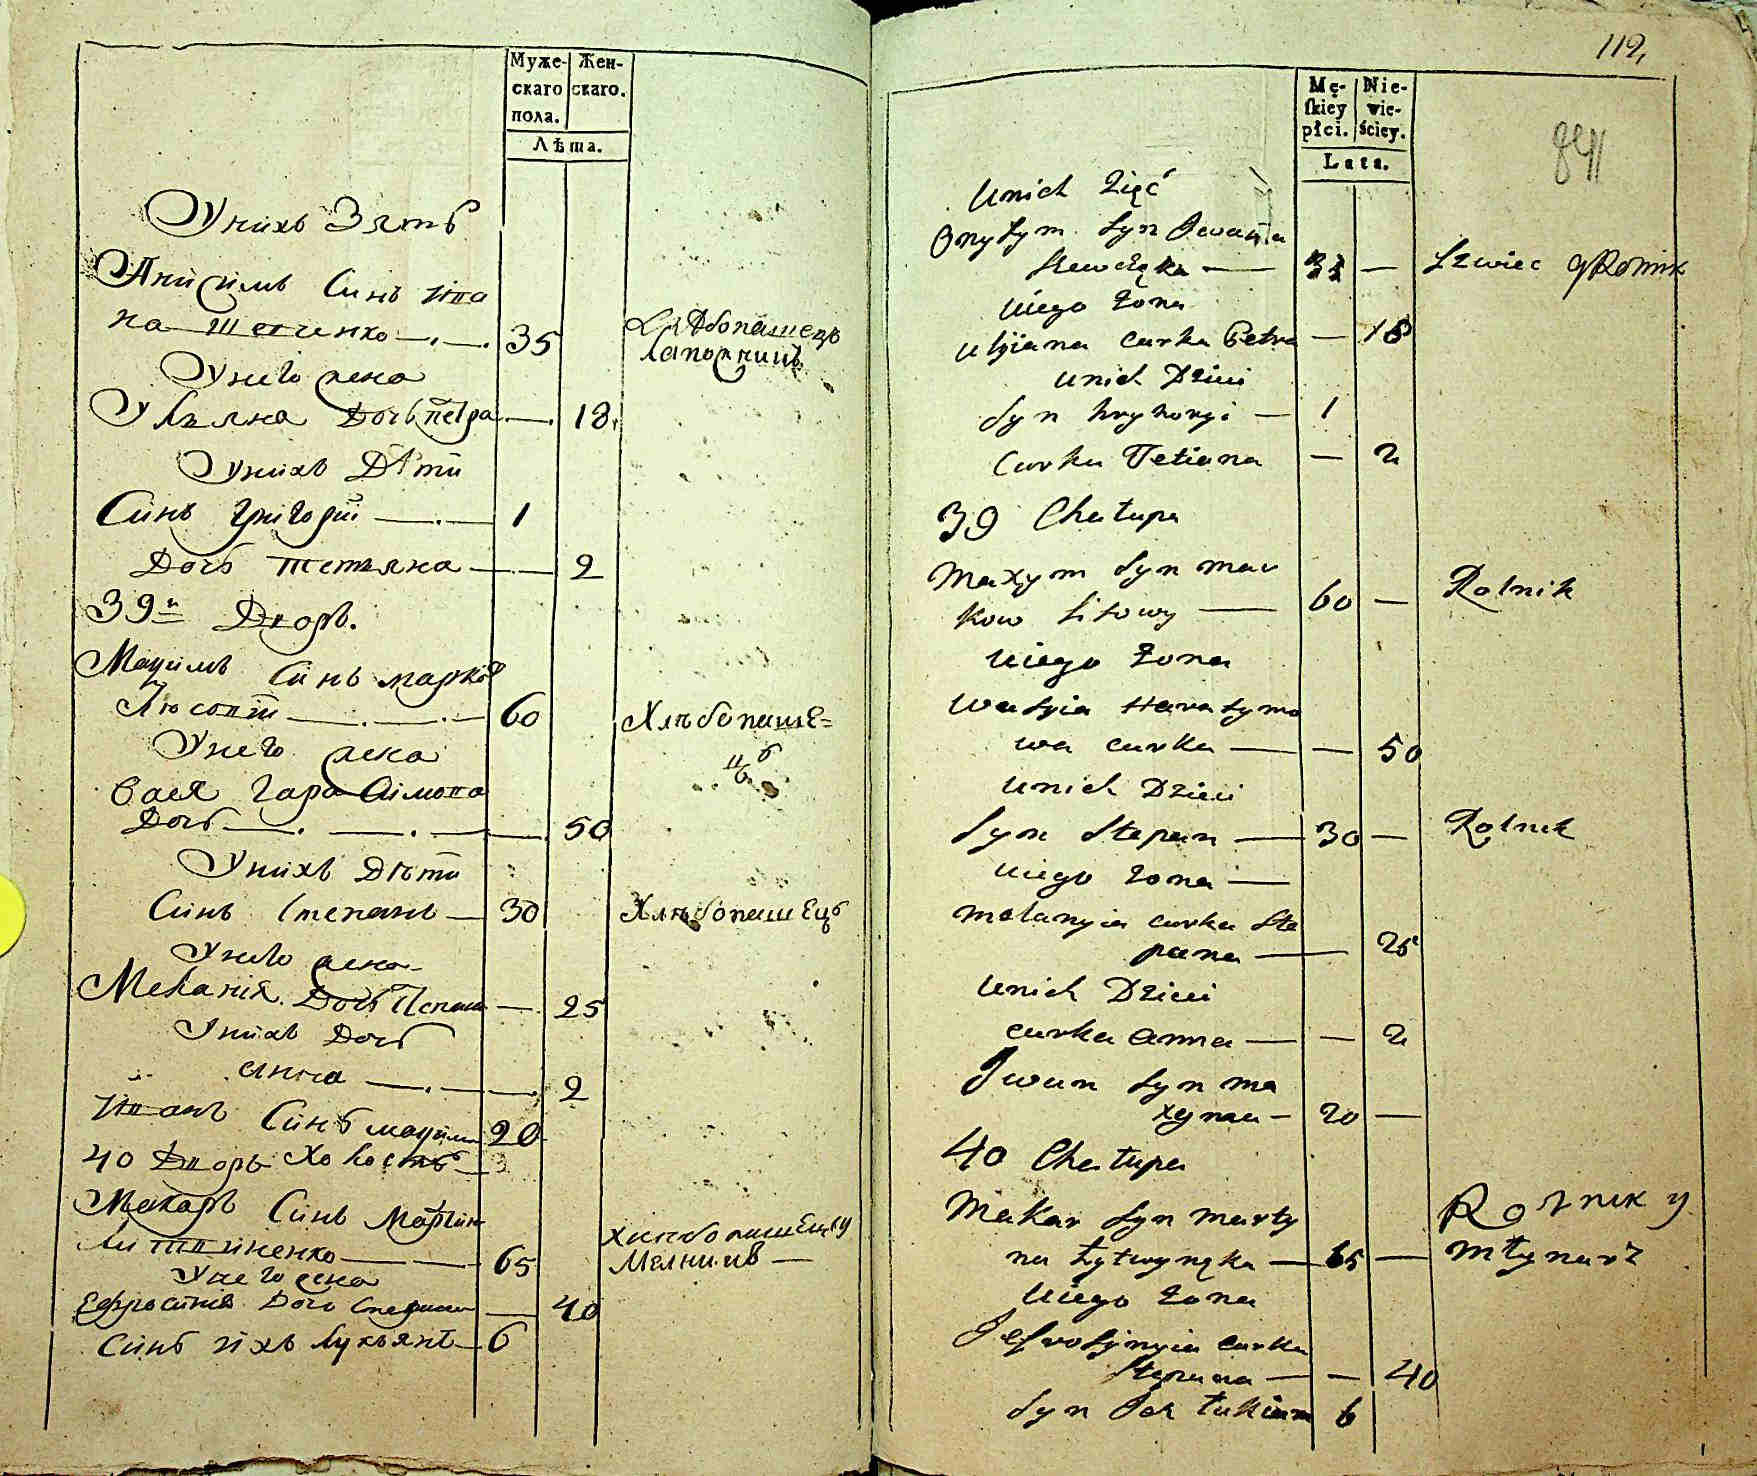 Муже-
скаго
пола.
Жен-
скаго.
Лѣта.
Унихъ Зять
Анисимъ Синъ Ива
на Шевченко 35 Хлѣбопашецъ
Унего жена
Улияна Дочь Петра 18
Унихъ Дѣти
Синъ Григорій 1
Дочь Тетяна 2
39й Дворъ.
Мацимъ Синъ Марковъ
60 Хлѣбопаше=
цъ
Унего жена
Вася Гарасимова
Дочь 50
Унихъ Дѣти
Синъ Степанъ 30 Хлѣбопашецъ
Унего жена
Меланія Дочь 25
Унихъ Дочь
анна 2
Иванъ Синъ Мацима 20
40 Дворъ Холостъ
Макаръ Синъ Мартина
Литвиненко 65 Хлѣбопашецъ и
Мелникъ
Унего жена
Ефросинія Дочь Степана 40
Синъ ихъ Лукьянъ 6
112
Mę-
skiey
płci.
Nie-
wie-
ściey.
Lata.
Unich Zięć
Onysym Syn Iwana
Szewczęka — Szwiec y Rolnik
Uiego Żona
Uljiana curka Petra — 18
Unich Dzieci
Syn hryhoryi — 1
Curka Tetiana — 2
39 Chałupa
Maxym Syn Mar
kow Lisowy — 60 — Rolnik
Uiego Żona
Wasyia Harasymo
wa curka — — 50
Unich Dzieci
Syn Stepan — 30 — Rolnik
Uiego Żona —
Melanyia curka Ste
pana — 25
Unich Dzieci
curka anna — — 2
Iwan Syn Ma
xyma — 20 —
40 Chałupa
Makar Syn Marty
na Łytwynęka — 65 — Rolnik y
Młynarz
Uiego Żona
Jefrosynyia curka
Stepana — — 40
Syn Jch Łukian 6